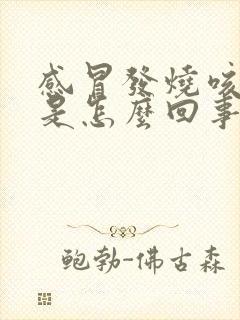 感冒發燒咳
是怎麼回事
鮑勃-佛古森